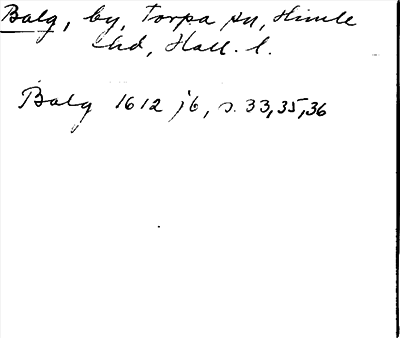 Balg, by, Torpa sn, Himle
hd, Hall. l.
Balg 1612 jb, s. 33,35,36